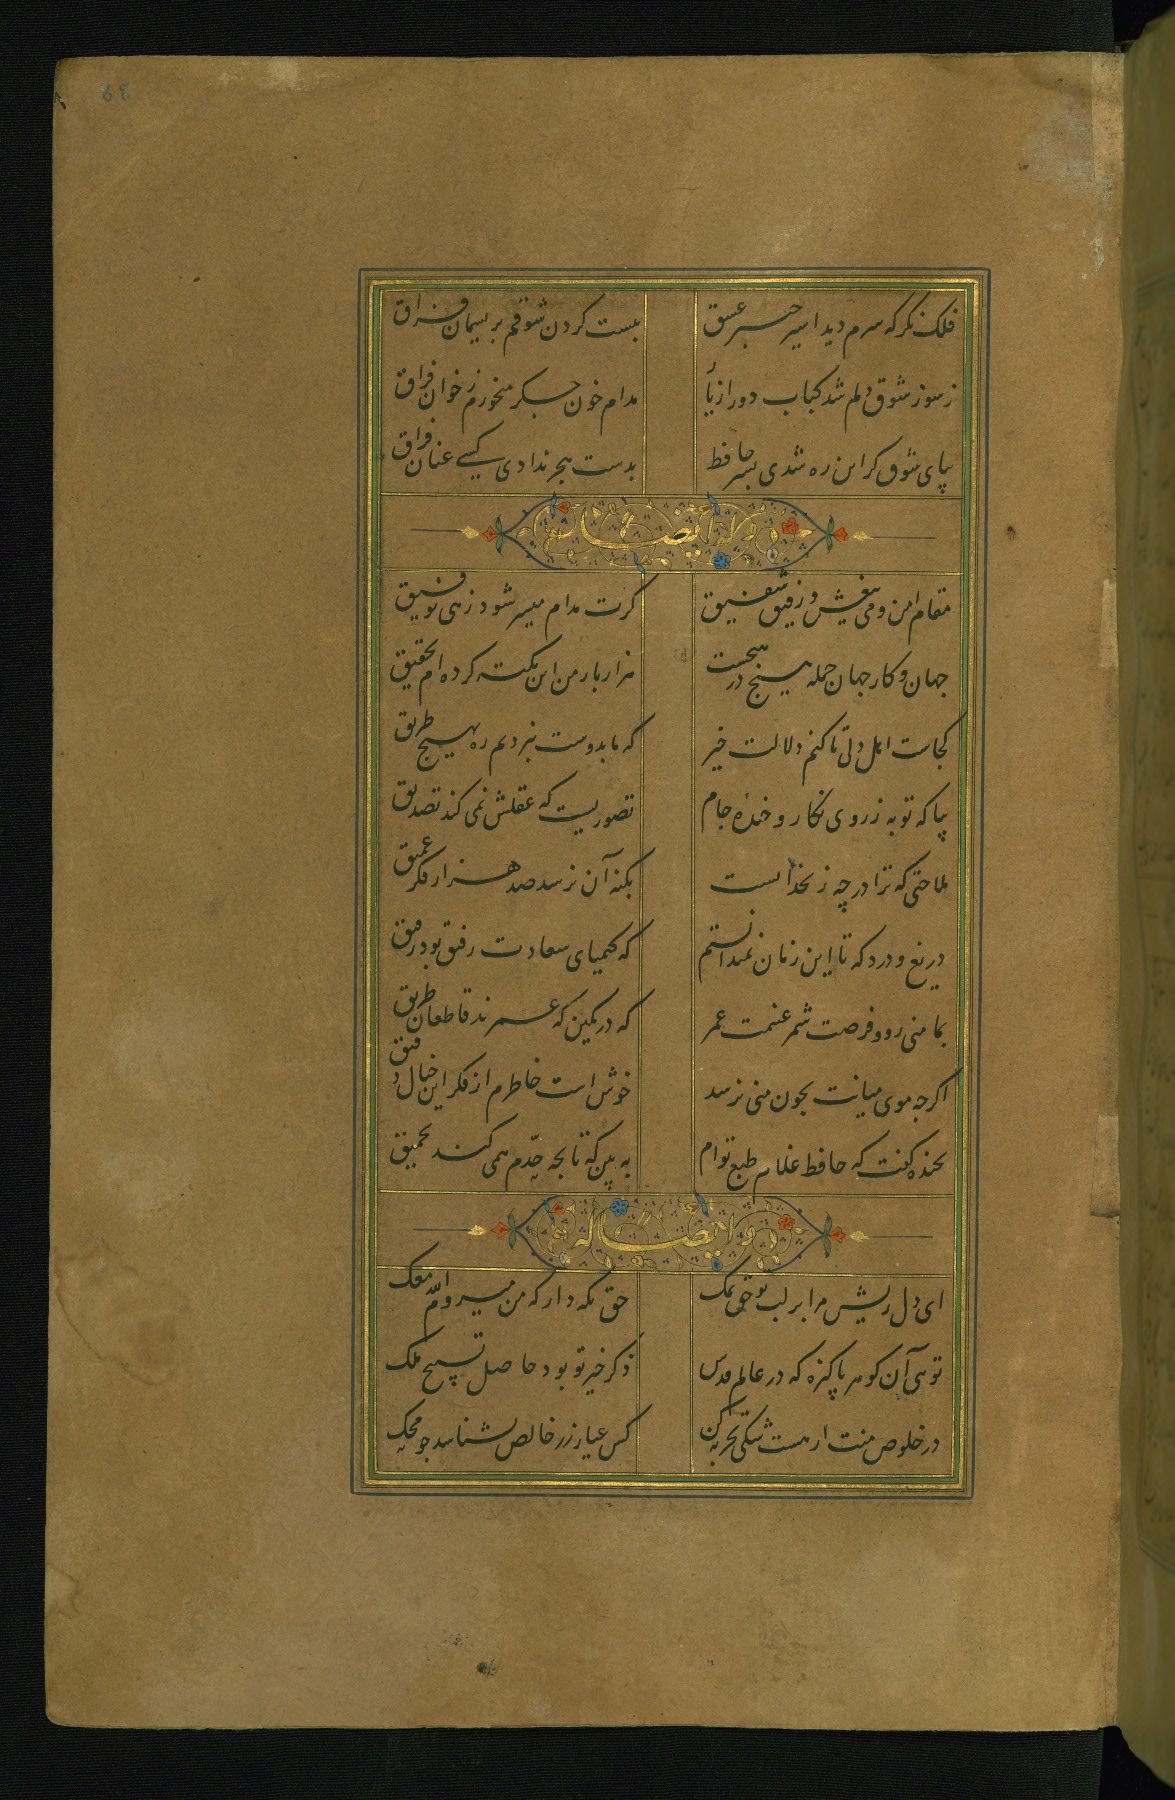 فلک نکر که سرم دید اسیر چنبر عشق
ببست کردن شوقم بریسمان فراق
ز سوز شوق دلم شد کباب دور از یار
مدام خون جکر میخورم ز خوان فراق
بپای شوق کر این ره شدی بسر حافظ
بدست هجر ندادی کسی عنان فراق
وله ایضا
مقام امن و می بیغش و رفیق شفیق
کرت مدام میسر شود زهی توفیق
جهان و کار جهان جمله هیچ در هیچست
هزار بار من این نکته کرده ام تحقیق
کجاست اهل دلی تا کنم دلالت خیر
که ما بدوست نبردیم ره بهیچ طریق
بیا که توبه ز روی نکار و خنده جام
تصوریست که عقلش نمی کند تصدیق
ملاحتی که ترا در چه زنخدانست
بکنه آن نرسد صد هزار فکر عمیق
دریغ و درد که تا این زمان ندانستم
که کیمیای سعادت رفیق بود رفیق
بمامنی رو و فرصت شمر غنیمت عمر
که در کمین که عمرند قاطعان طریق
اکرچه موی میانت بچون منی نرسد
خوش است خاطرم از فکر این خیال دقیق
بخنده کفت که حافظ غلام طبع توام
به بین که تا بچه حدم همی کند تحمیق
وله ایضا
ای دل ریش مرا بر لب تو حق نمک
حق نکه دار که من میروم الله معک
تویی آن کوهر پاکیزه که در عالم قدس
ذکر خیر تو بود حاصل تسبیح ملک
در خلوص منت ار هست شکی تجربه کن
کس عیار زر خالص نشناسد چو محک